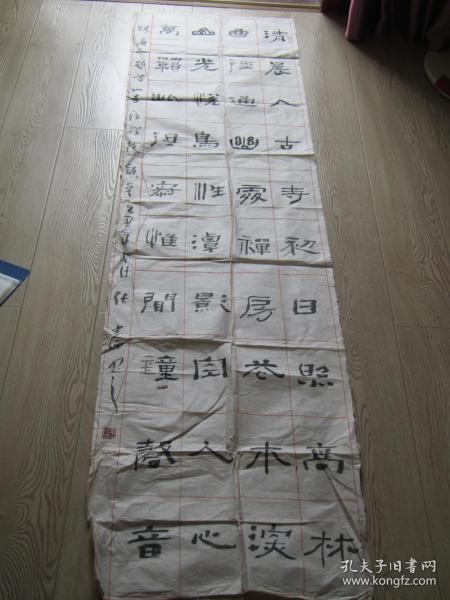 清晨入古寺初日照高林
曲徑通幽處禪房花木深
山光悅鳥性潭影空人心
萬籟此俱寂惟聞鐘磬音
孔夫子旧书网
www.kongfz.com